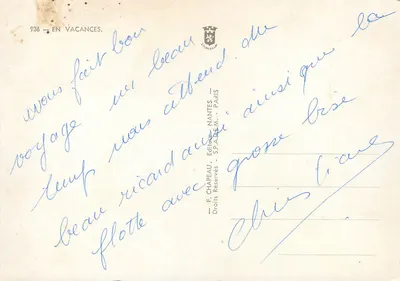 936 - EN VACANCES.
avons fait bon
voyage un beau
temp nous attend du
beau ricard aussi ainsi que la
flotte avec grosse bise
Christiane
F. CHAPEAU, EDITEUR, NANTES
Droits Réservés - S.P.A.D.E.M. - PARIS